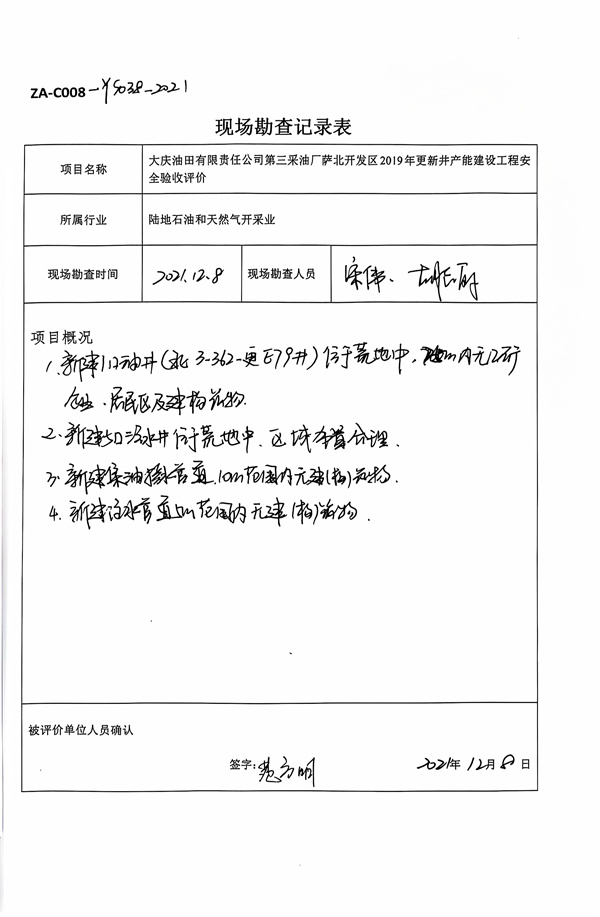 ZA-C008-YS038-2021
现场勘查记录表
项目名称
大庆油田有限责任公司第三采油厂萨北开发区2019年更新井产能建设工程安
全验收评价
所属行业
陆地石油和天然气开采业
现场勘查时间
2021.12.8
现场勘查人员
宋伟、
项目概况
1、新建1口油井(北3-362-更E79井)位于荒地中,内无工矿
企业、居民区及建构筑物.
2、新建5口注水井位于荒地中,区域布置合理.
3、新建集油掺水管道10m范围内无建(构)筑物.
4、新建注水管道5m范围内无建(构)筑物.
被评价单位人员确认
签字:范方明
2021年12月8日